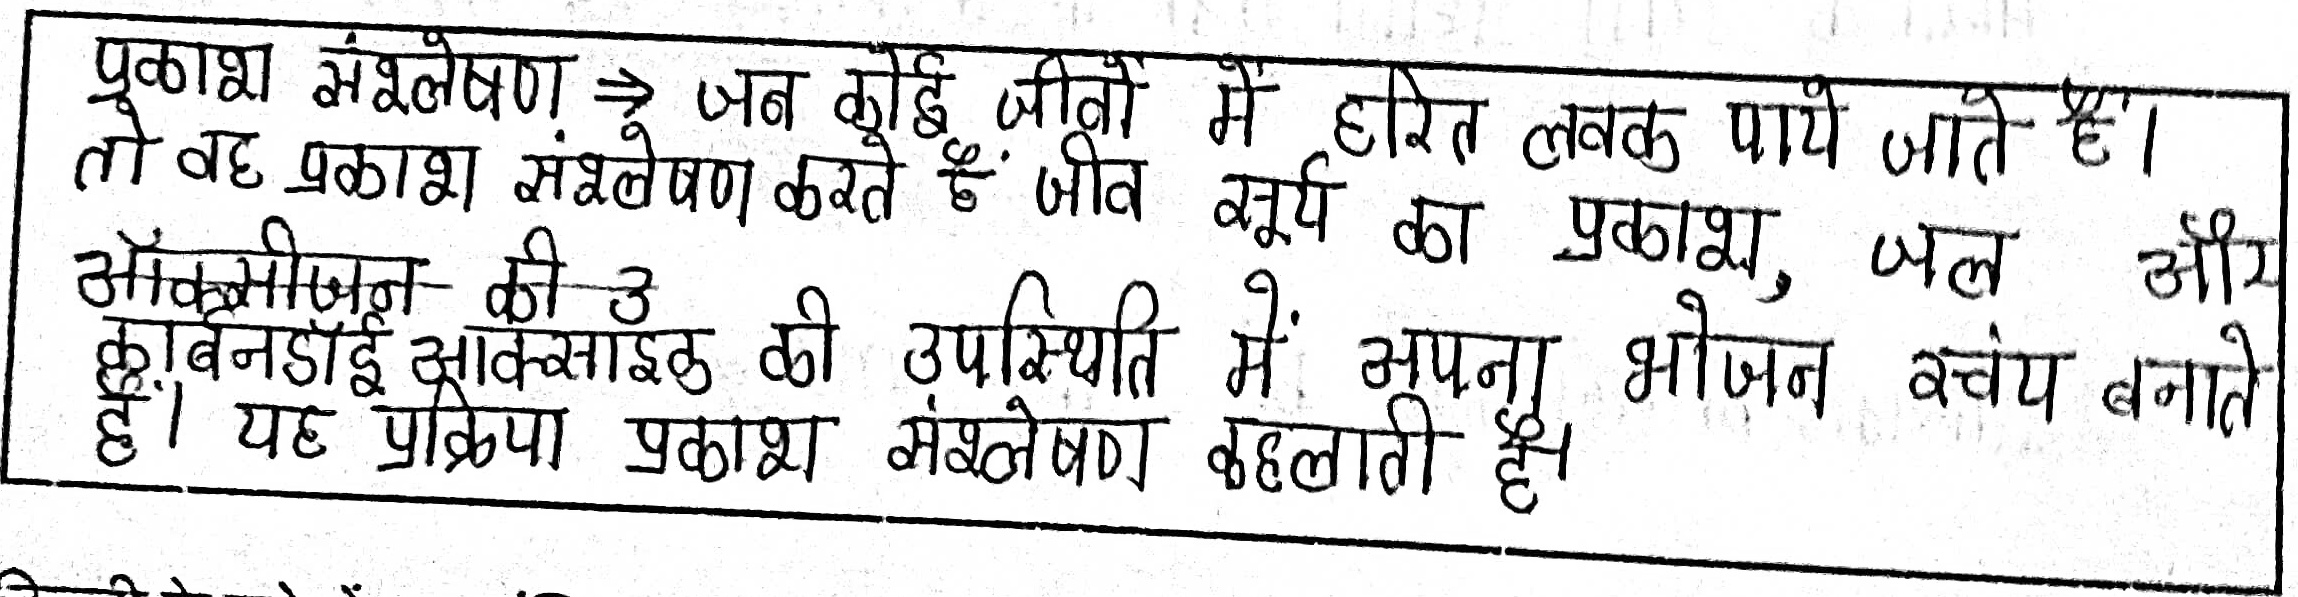 प्रकाश संश्लेषण ⇒ जब कोई जीवों में हरित लवक पाये जाते हैं।
तो वह प्रकाश संश्लेषण करते हैं जीव सूर्य का प्रकाश, जल और
ऑक्सीजन की उ
कार्बनडॉई ऑक्साइड की उपस्थिति में अपना भोजन स्वंय बनाते
हैं। यह प्रक्रिया प्रकाश संश्लेषण कहलाती है।